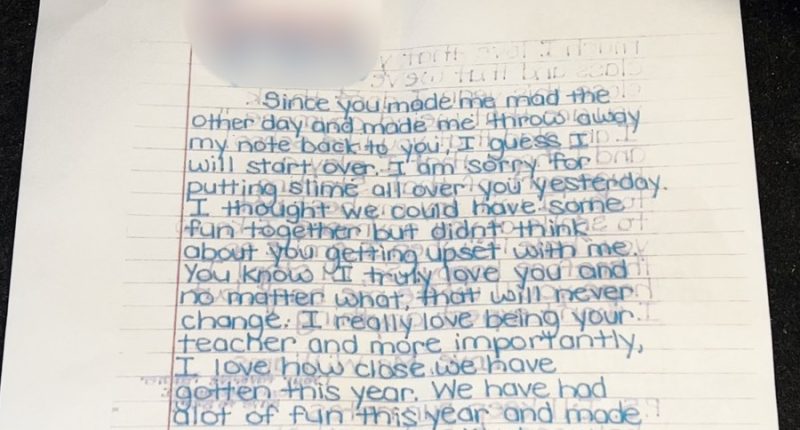 Since you made me mad the
other day and made me throw away
my note back to you, I guess I
will start over. I am sorry for
putting slime all over you yesterday.
I thought we could have some
fun together but didnt think
about you getting upset with me.
You know I truly love you and
no matter what, that will never
change. I really love being your
teacher and more importantly,
I love how close we have
gotten this year. We have had
alot of fun this year and made